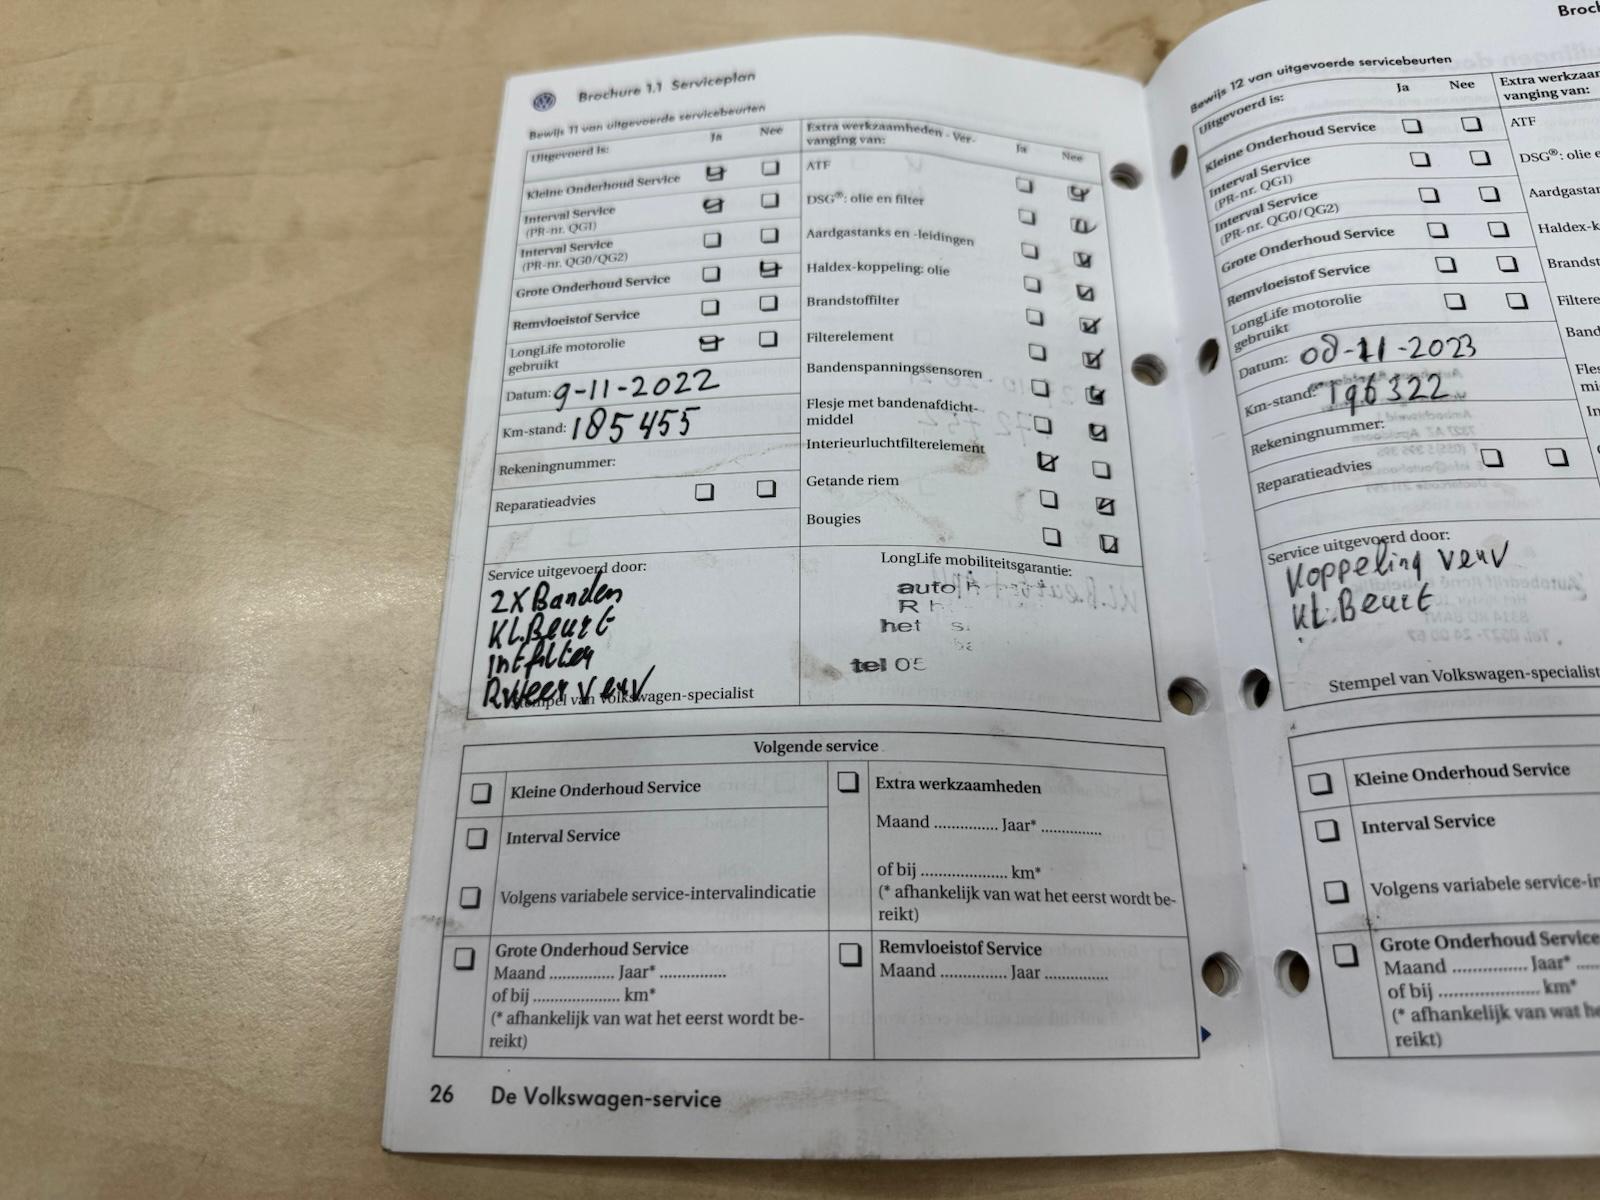 Brochure 1.1 Serviceplan
Bewijs 11 van uitgevoerde servicebeurten
Uitgevoerd is:
Ja
Nee
Kleine Onderhoud Service
Interval Service
(PR-nr. QG1)
Interval Service
(PR-nr. QG0/QG2)
Grote Onderhoud Service
Remvloeistof Service
LongLife motorolie
gebruikt
Datum: 9-11-2022
Km-stand: 185455
Rekeningnummer:
Reparatieadvies
Extra werkzaamheden - Ver-
vanging van:
Ja
Nee
ATF
DSG®: olie en filter
Aardgastanks en -leidingen
Haldex-koppeling: olie
Brandstoffilter
Filterelement
Bandenspanningssensoren
Flesje met bandenafdicht-
middel
Interieurluchtfilterelement
Getande riem
Bougies
Service uitgevoerd door:
2X Banden
KL.Beurt
Intfilter
RWeer verv
Stempel van Volkswagen-specialist
LongLife mobiliteitsgarantie:
auto
R
het
tel 05
Volgende service
Kleine Onderhoud Service
Interval Service
Volgens variabele service-intervalindicatie
Grote Onderhoud Service
Maand .............. Jaar* ..............
of bij .................... km*
(* afhankelijk van wat het eerst wordt be-
reikt)
Extra werkzaamheden
Maand .............. Jaar* ..............
of bij .................... km*
(* afhankelijk van wat het eerst wordt be-
reikt)
Remvloeistof Service
Maand .............. Jaar ..............
26 De Volkswagen-service
Broch
Bewijs 12 van uitgevoerde servicebeurten
Uitgevoerd is:
Ja
Nee
Kleine Onderhoud Service
Interval Service
(PR-nr. QG1)
Interval Service
(PR-nr. QG0/QG2)
Grote Onderhoud Service
Remvloeistof Service
LongLife motorolie
gebruikt
Datum: 08-11-2023
Km-stand: 196322
Rekeningnummer:
Reparatieadvies
Extra werkzaam
vanging van:
ATF
DSG®: olie e
Aardgastan
Haldex-k
Brandst
Filtere
Band
Fles
mi
In
Service uitgevoerd door:
Koppeling verv
KL.Beurt
Stempel van Volkswagen-specialist
Kleine Onderhoud Service
Interval Service
Volgens variabele service-in
Grote Onderhoud Service
Maand .............. Jaar* ....
of bij .................... km*
(* afhankelijk van wat he
reikt)